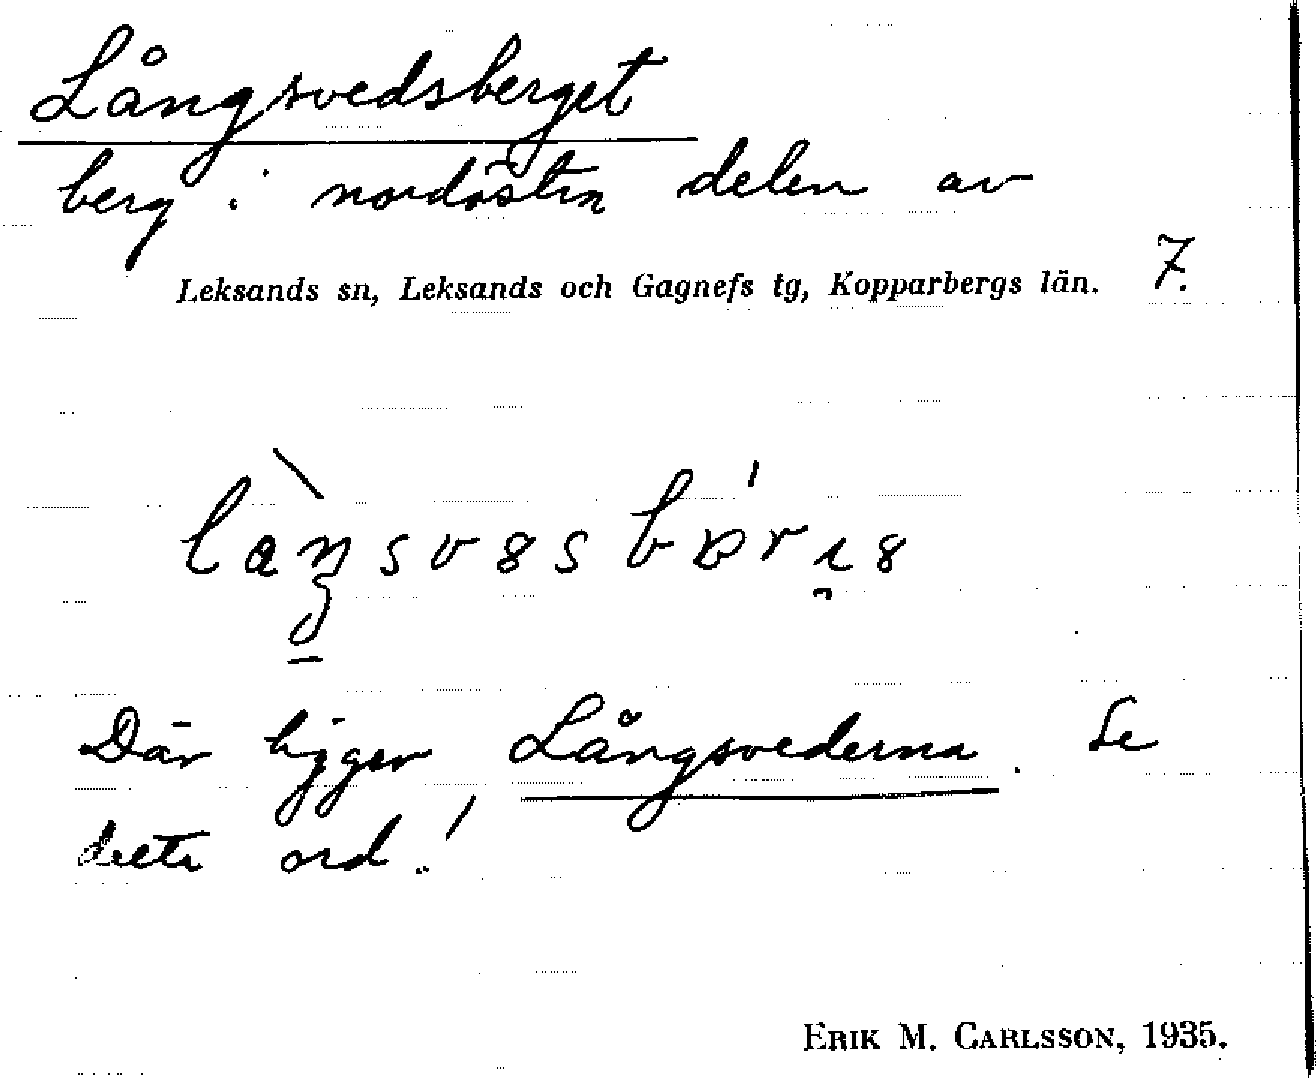 Långsvedsberget
berg i nordöstra delen av
Leksands sn, Leksands och Gagnefs tg, Kopparbergs län. 7.
Där ligger Långsvederna. Se
detta ord!
ERIK M. CARLSSON, 1935.